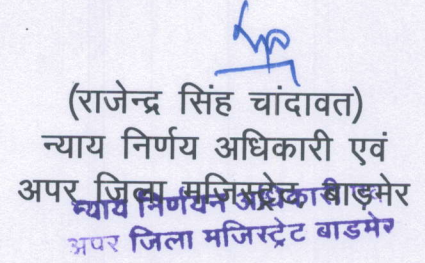 (राजेन्द्र सिंह चांदावत)
न्याय निर्णय अधिकारी एवं
अपर जिला मजिस्ट्रेट बाड़मेर
न्याय निर्णयन अधिकारी
अपर जिला मजिस्ट्रेट बाडमेर